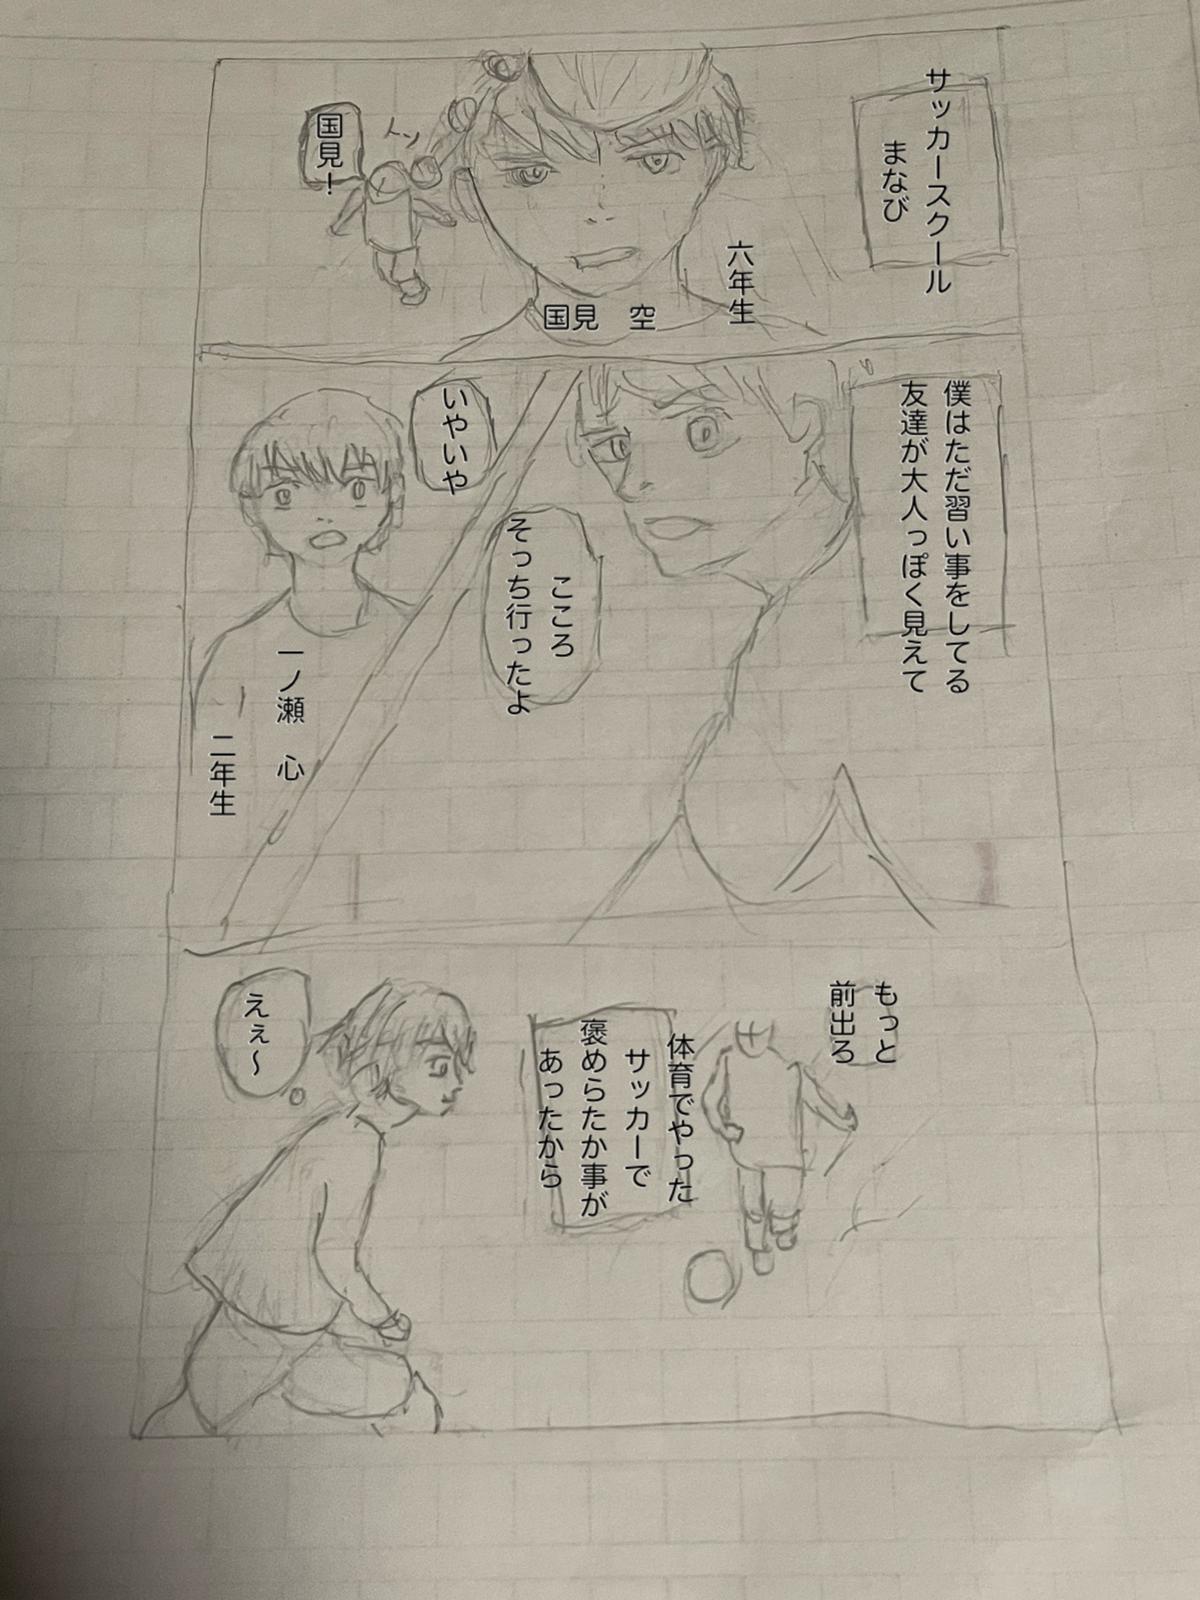 サッカースクール
まなび
六年生
国見　空
トッ
国見！
僕はただ習い事をしてる
友達が大人っぽく見えて
こころ
そっち行ったよ
いやいや
一ノ瀬　心
二年生
もっと
前出ろ
体育でやった
サッカーで
褒めらたか事が
あったから
ええ〜